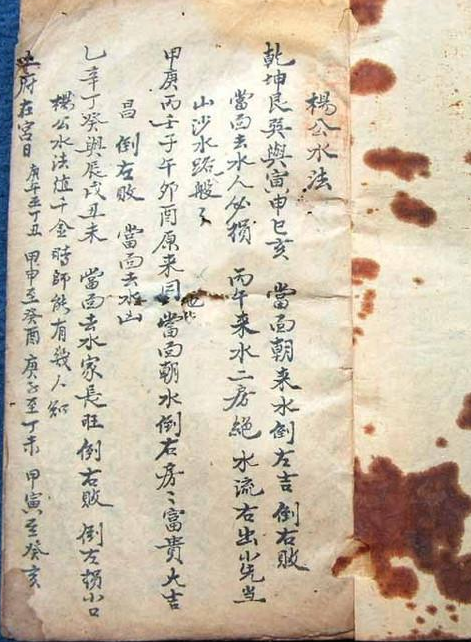 楊公水法
乾坤艮巽與寅申巳亥 當面朝來水倒左吉 倒右敗
當面去水人必損 丙午來水二房絕 水流右出小先當
山沙水路般々
甲庚丙壬子午卯酉原来同 當面朝水倒右房々富貴大吉
昌 倒右敗 當面去水凶
乙辛丁癸與辰戌丑未 當面去水家長旺 倒右敗 倒左損小口
楊公水法值千金 時師能有幾人知
土府在宮日 庚午至丁丑 甲申至癸酉 庚子至丁未 甲寅至癸亥